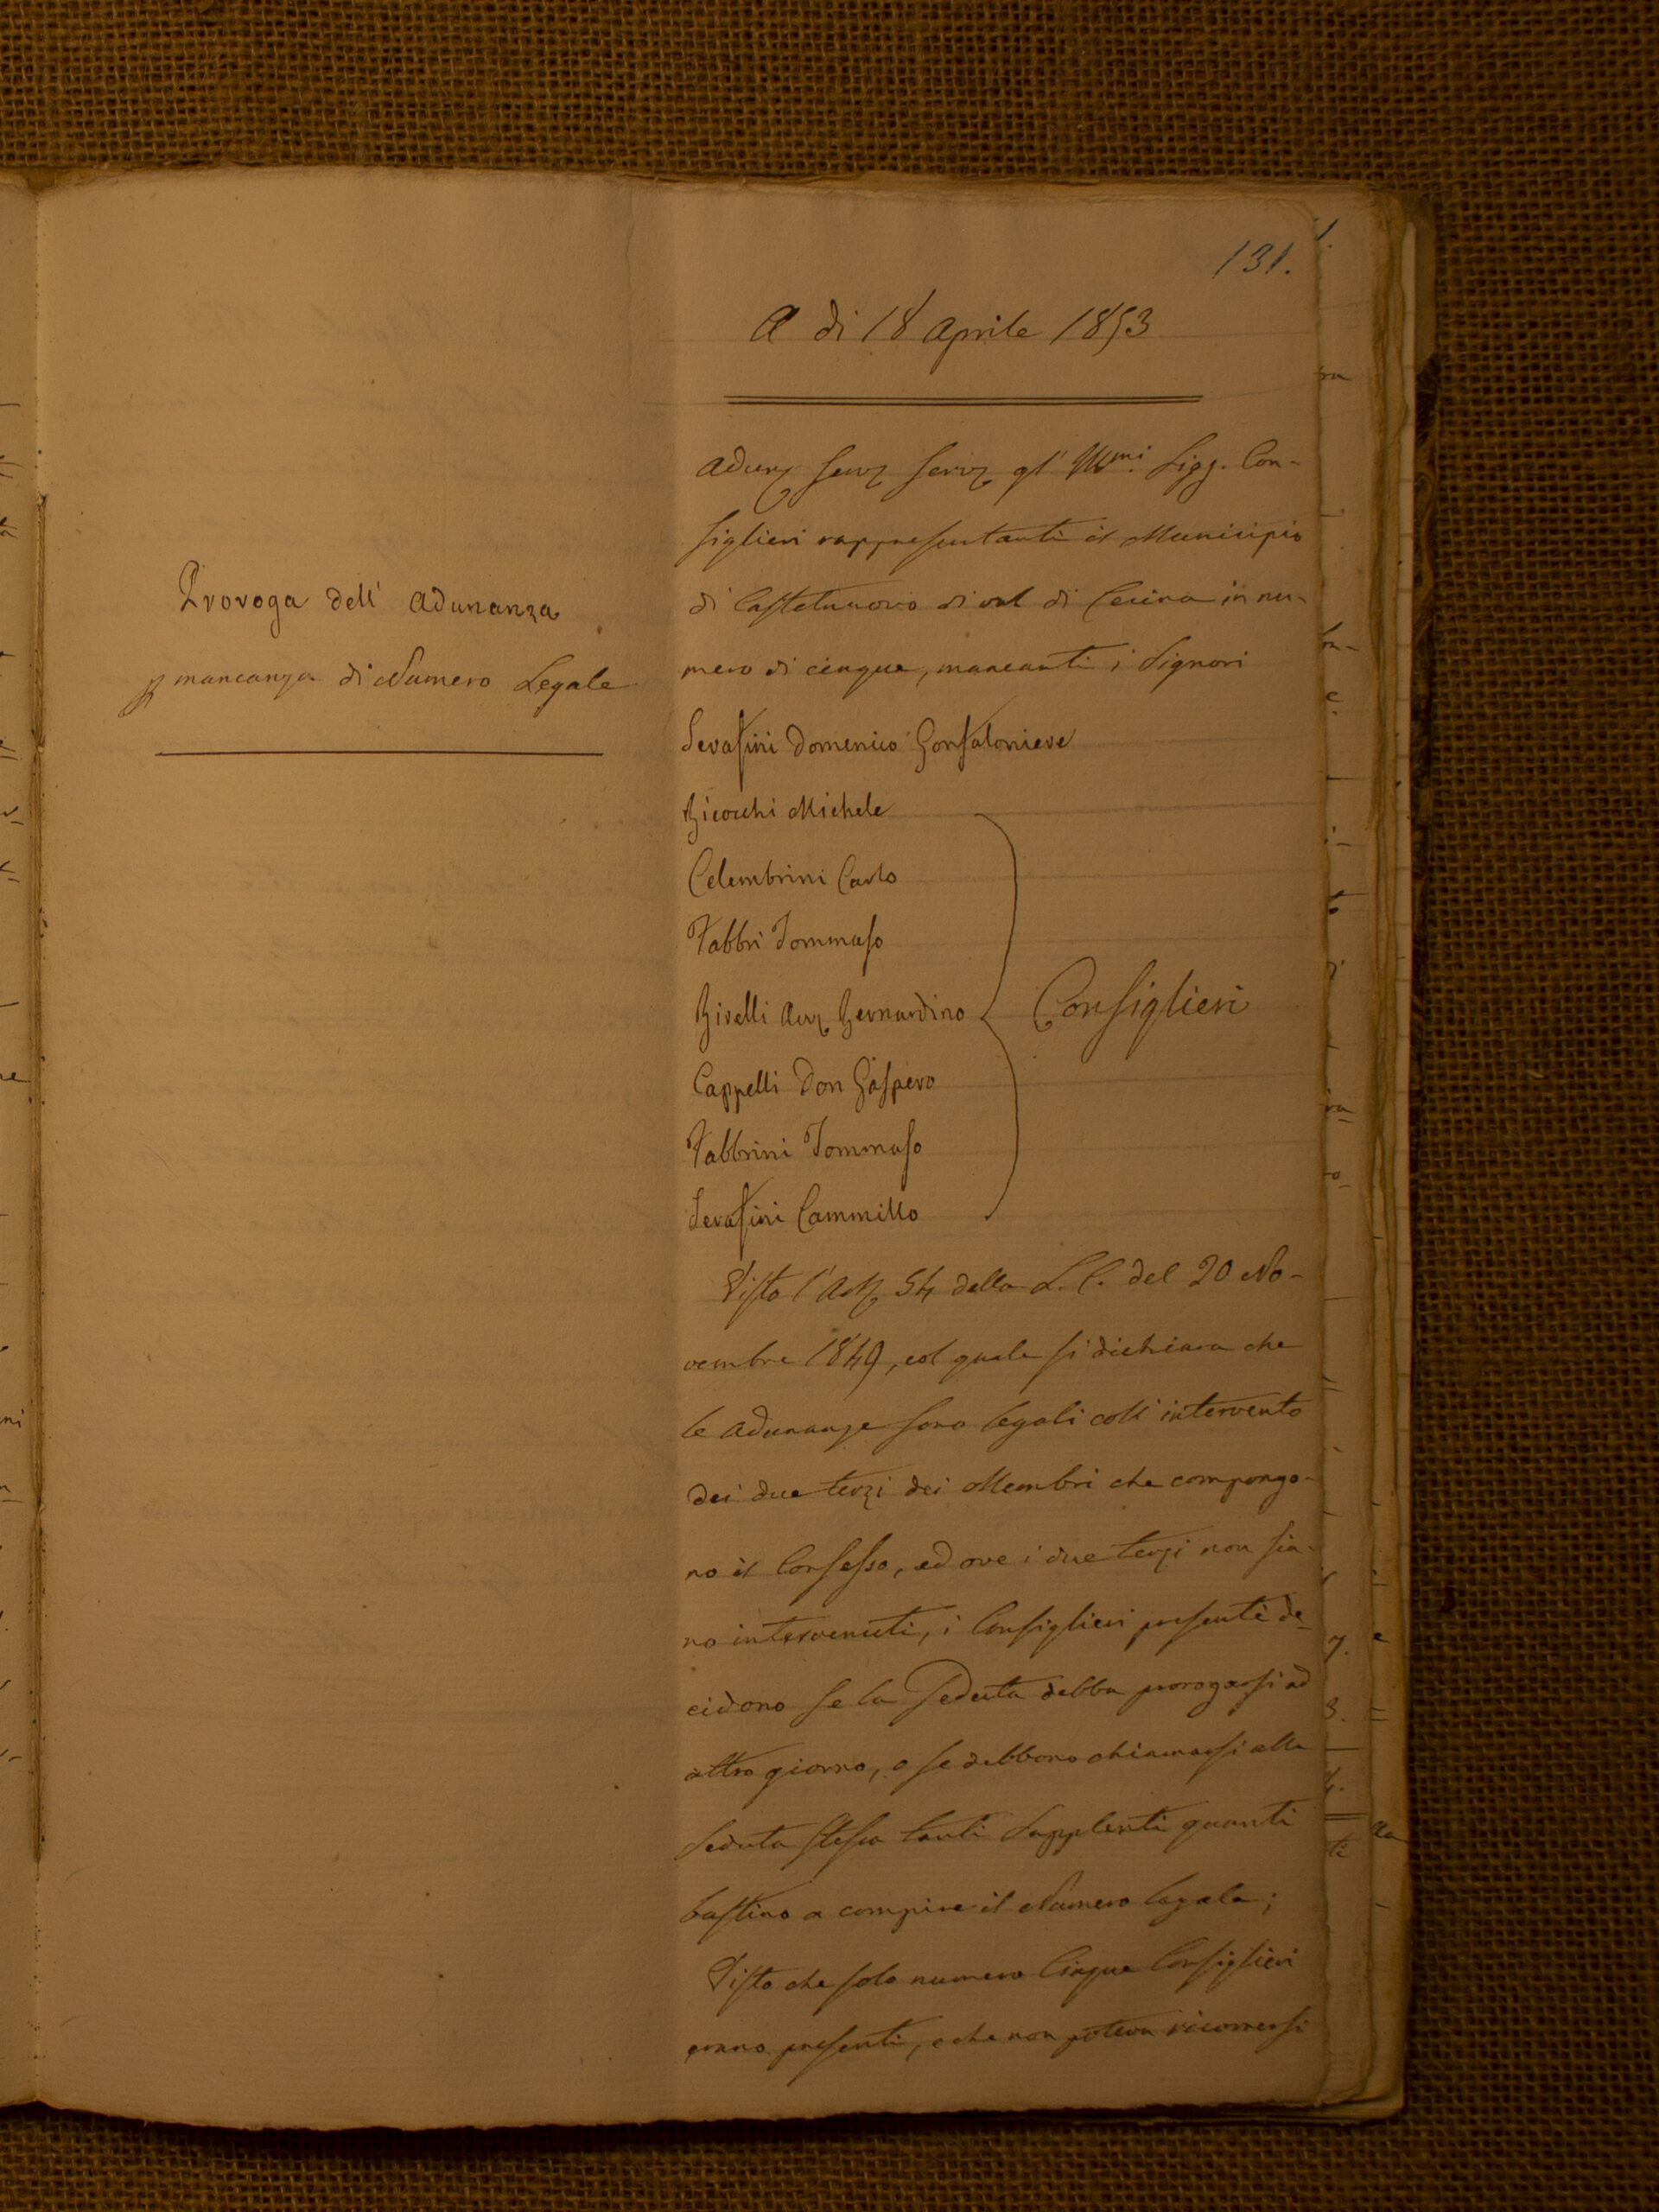 131.
A di 18 Aprile 1853
Adunz Servz Servz gl' Illmi. Sigg. Con-
siglieri rappresentanti il Municipio
di Castelnuovo di val di Cecina in nu-
mero di cinque, mancanti i Signori
Serafini Domenico Gonfaloniere
Bicocchi Michele
Celembrini Carlo
Fabbri Tommaso
Birelli Avv Bernardino
Consiglieri
Cappelli Don Gaspero
Fabbrini Tommaso
Serafini Cammillo
Visto l'Art 54 della L. C. del 20 No-
vembre 1849, col quale si dichiara che
le Adunanze sono legali coll' intervento
dei due terzi dei Membri che compongo-
no il Consesso, ed ove i due terzi non sia-
no intervenuti, i Consiglieri presenti de-
cidono se la Seduta debba prorogarsi ad
altro giorno, o se debbono chiamarsi alla
seduta stessa tanti Supplenti quanti
bastino a compire il Numero legale;
Visto che solo numero Cinque Consiglieri
erano presenti, e che non poteva ricorrersi
Proroga dell' Adunanza
p mancanza di Numero Legale